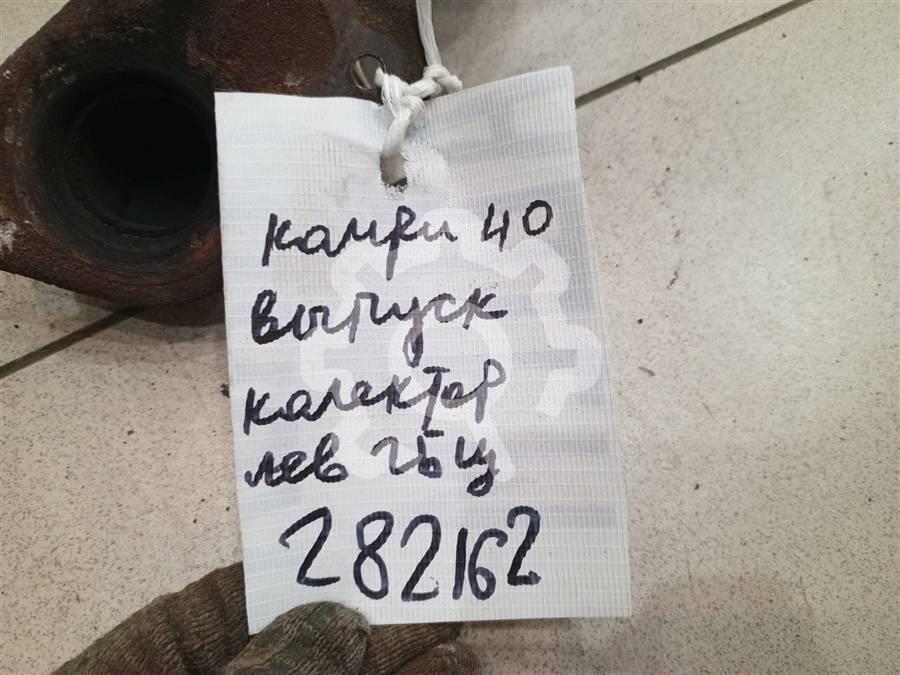 Камри 40
выпуск
калектор
лев ГБЦ
282162